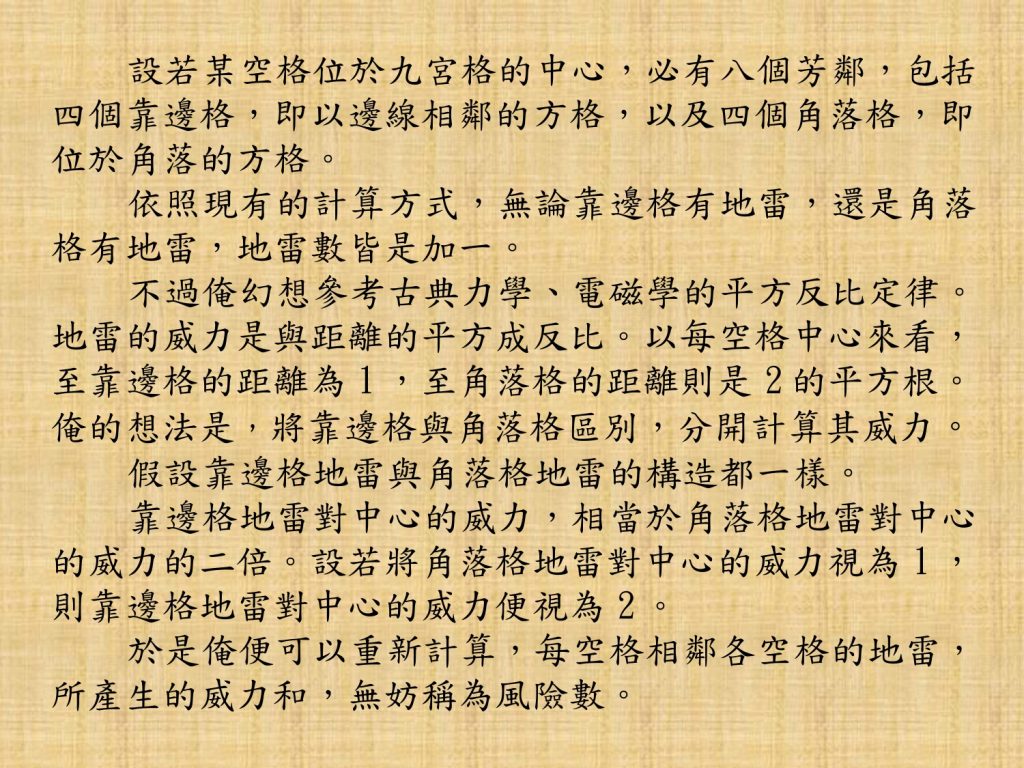 設若某空格位於九宮格的中心，必有八個芳鄰，包括
四個靠邊格，即以邊線相鄰的方格，以及四個角落格，即
位於角落的方格。
依照現有的計算方式，無論靠邊格有地雷，還是角落
格有地雷，地雷數皆是加一。
不過俺幻想參考古典力學、電磁學的平方反比定律。
地雷的威力是與距離的平方成反比。以每空格中心來看，
至靠邊格的距離為1，至角落格的距離則是2的平方根。
俺的想法是，將靠邊格與角落格區別，分開計算其威力。
假設靠邊格地雷與角落格地雷的構造都一樣。
靠邊格地雷對中心的威力，相當於角落格地雷對中心
的威力的二倍。設若將角落格地雷對中心的威力視為1，
則靠邊格地雷對中心的威力便視為2。
於是俺便可以重新計算，每空格相鄰各空格的地雷，
所產生的威力和，無妨稱為風險數。